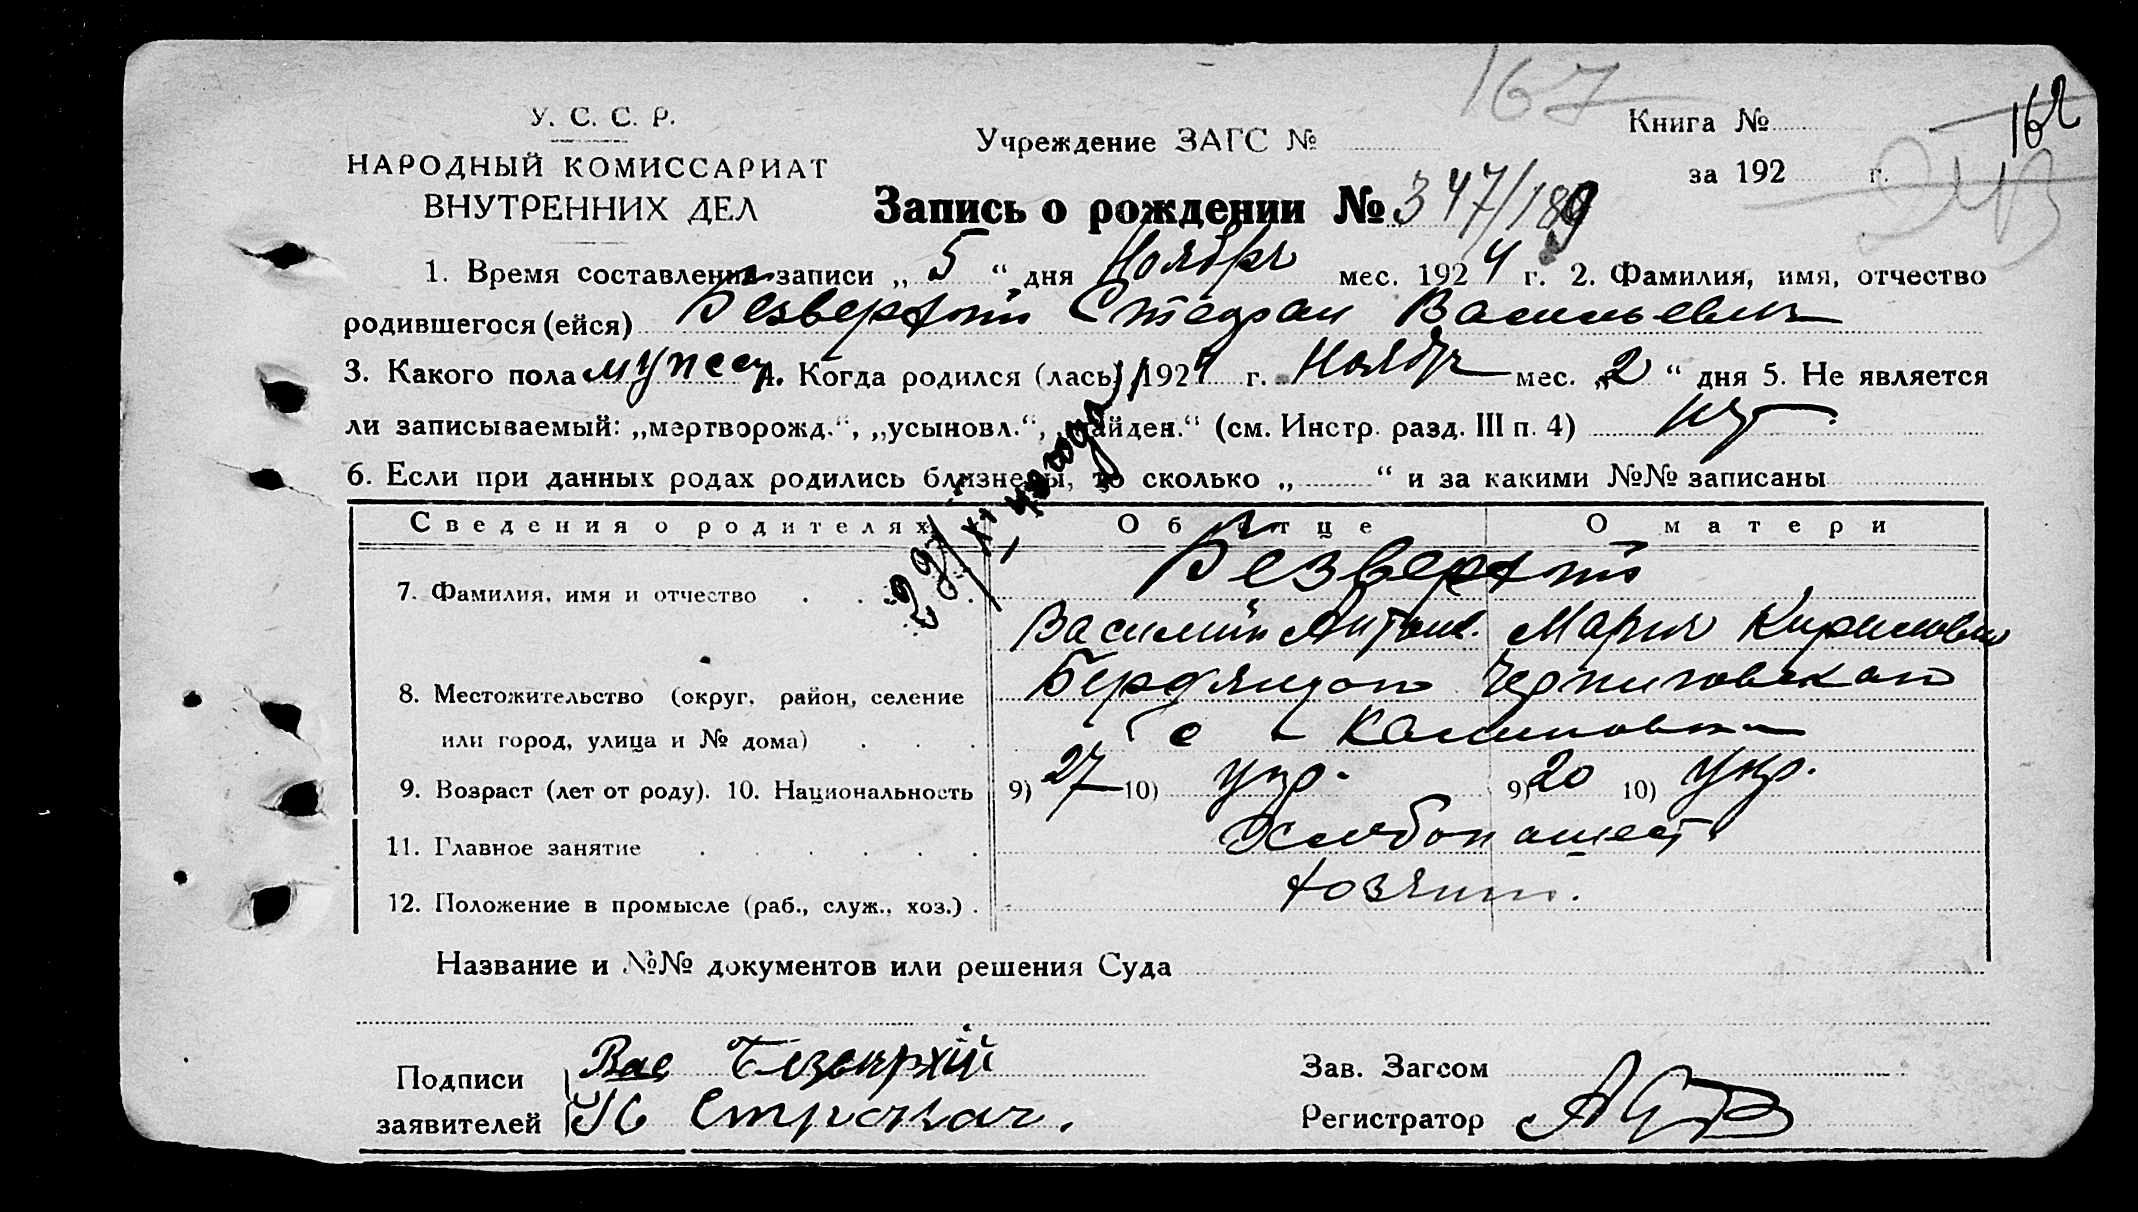 167
У. С. С. Р.
Книга №
162
Учреждение ЗАГС №
НАРОДНЫЙ КОМИССАРИАТ
за 192 г.
243
ВНУТРЕННИХ ДЕЛ
Запись о рождении № 347/189
1. Время составления записи „ 5 “ дня Ноябрь мес. 1924 г. 2. Фамилия, имя, отчество
родившегося (ейся) Безверхий Стефан Васильевич
3. Какого пола мужск 4. Когда родился (лась) 1924 г. Ноябрь мес. „2 “ дня 5. Не является
ли записываемый: „мертворожд.“, „усыновл.“, „найден.“ (см. Инстр. разд. III п. 4) нет
6. Если при данных родах родились близнецы, то сколько „ “ и за какими №№ записаны
Сведения о родителях Об отце О матери
Безверхий
7. Фамилия, имя и отчество
Василий Антон. Мария Кириловна
8. Местожительство (округ, район, селение
Черниговского
или город, улица и № дома)
с Калиновка
9. Возраст (лет от роду). 10. Национальность 9) 27 10) укр. 9) 20 10) укр.
11. Главное занятие Хлебопашест
12. Положение в промысле (раб., служ., хоз.) хозяин.
Название и №№ документов или решения Суда
Подписи Вас Безверхий
Зав. Загсом
заявителей
Регистратор